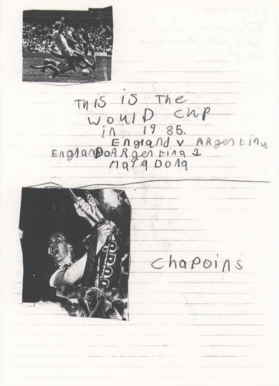 This is The
WOULD CUP
in 1986.
England v ARgentina
England 0 ARgentina 2
MaraDona
Chapoins